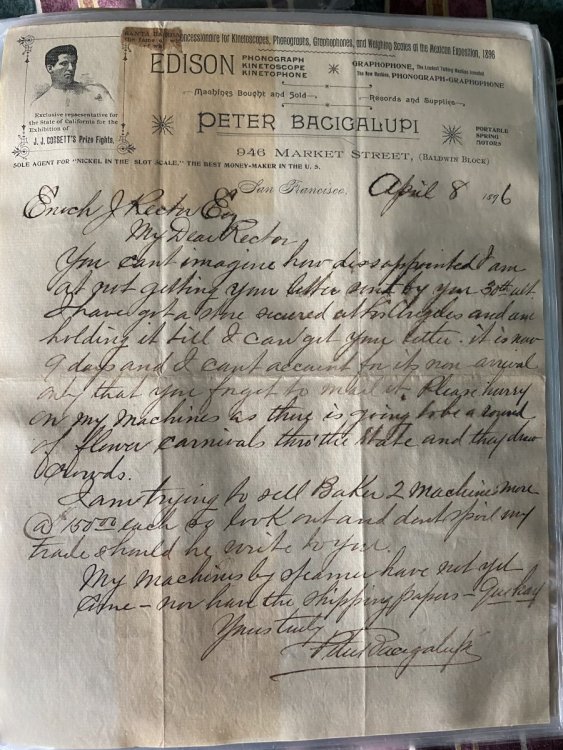 SANTA BARBARA
Concessionaire for Kinetoscopes, Phonographs, Graphophones, and Weighing Scales at the Mexican Exposition, 1896
EDISON PHONOGRAPH
KINETOSCOPE
KINETOPHONE
GRAPHOPHONE, The Loudest Talking Machine Invented
The New Machine, PHONOGRAPH-GRAPHOPHONE
Machines Bought and Sold
Records and Supplies
Exclusive representative for
the State of California for the
Exhibition of
J. J. CORBETT'S Prize Fights.
PETER BACIGALUPI
PORTABLE
SPRING
MOTORS
946 MARKET STREET, (BALDWIN BLOCK)
SOLE AGENT FOR "NICKEL IN THE SLOT SCALE," THE BEST MONEY-MAKER IN THE U. S.
San Francisco, April 8 1896
J Rector Esq
My Dear Rector
You cant imagine how dissappointed I am
at not getting your letter sent by you 30th ult
I have got a store secured at and am
holding it till I can get your letter. it is now
9 days and I cant account for its non arrival
only that you forgot to mail it. Please hurry
on my machines as there is going to be a round
of flower carnivals thro' the State and they draw
Crowds.
I am trying to sell Baker 2 machines more
@ $150.00 each so look out and dont spoil my
trade should he write to you.
My machines by steamer have not yet
come - nor have the shipping papers -
Yours truly
Peter Bacigalupi